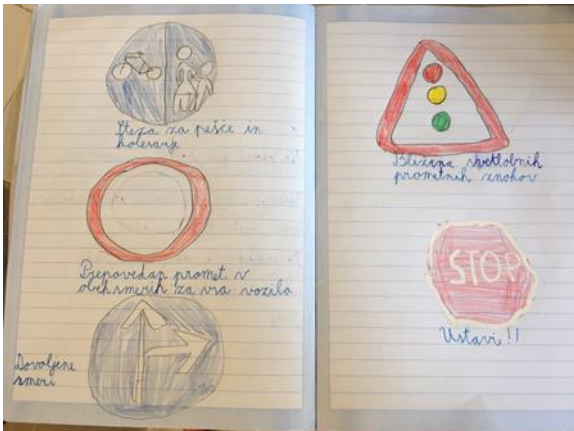 Steza za pešce in
kolesarje
Prepovedan promet v
obeh smerih za vsa vozila
Dovoljene
smeri
Bližina svetlobnih
prometnih znakov
STOP
Ustavi!!